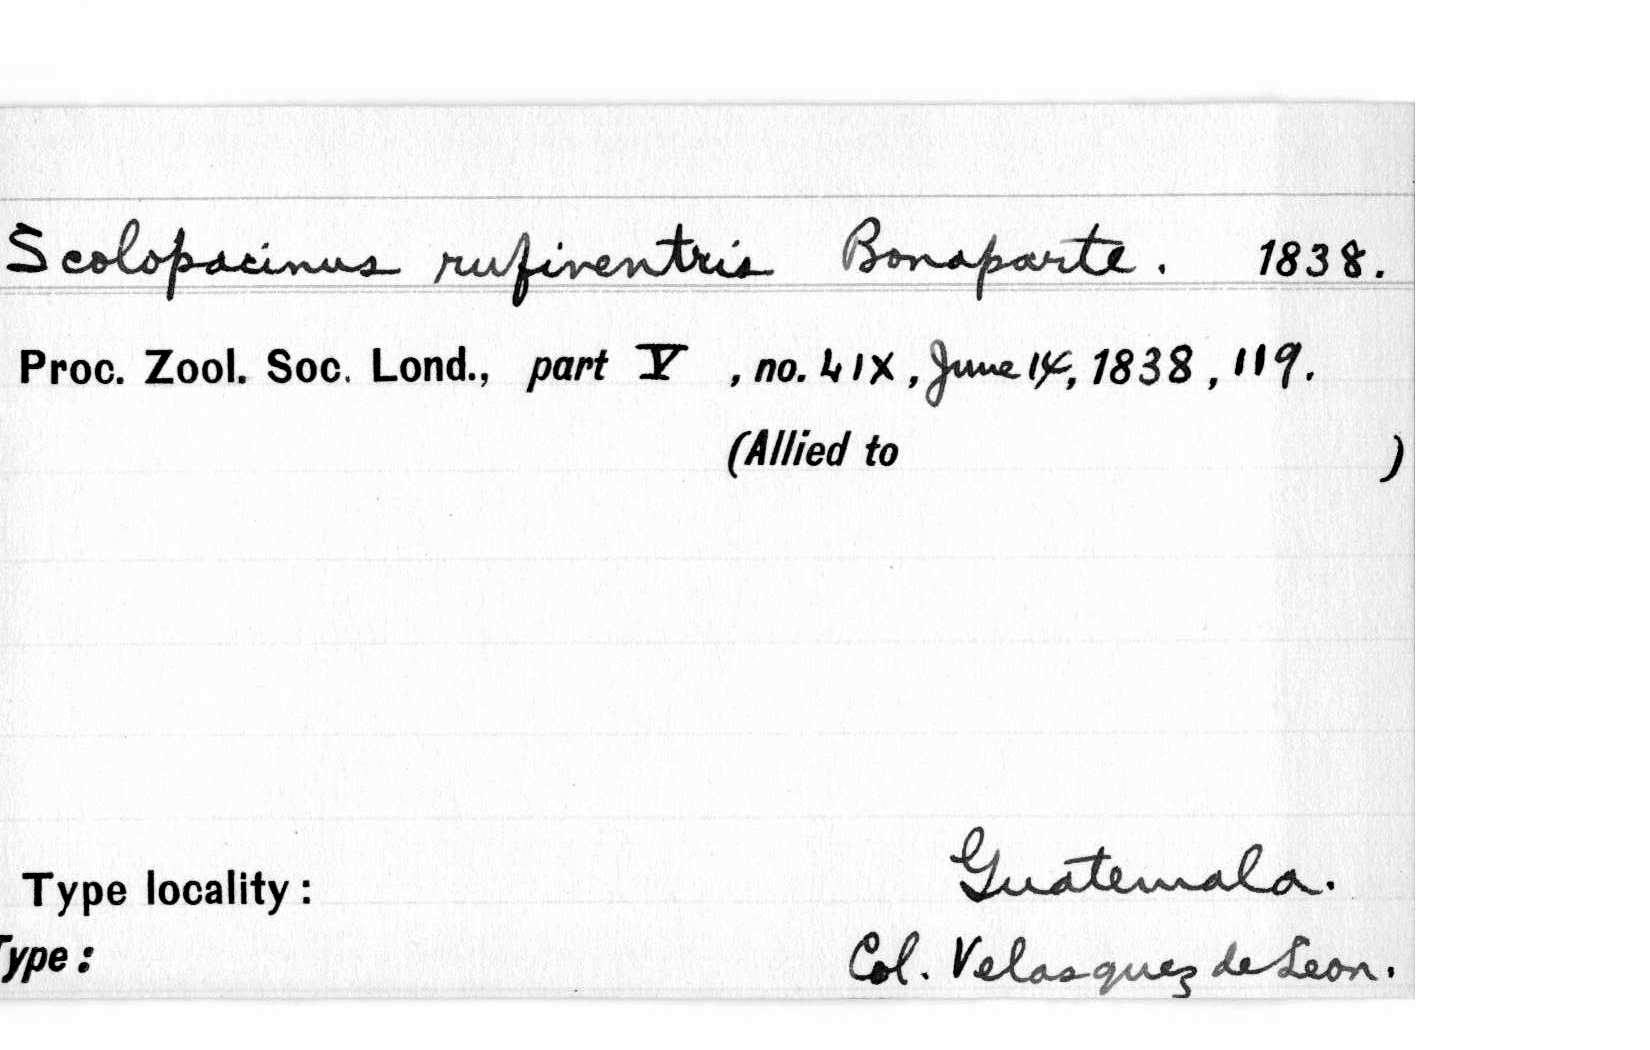 Scolopacinus rufiventris Bonaparte. 1838.
Proc. Zool. Soc. Lond., part V, no. LIX, June 14, 1838, 119.
(Allied to )
Type locality: Guatemala.
Type: Col. Velasquez de Leon.